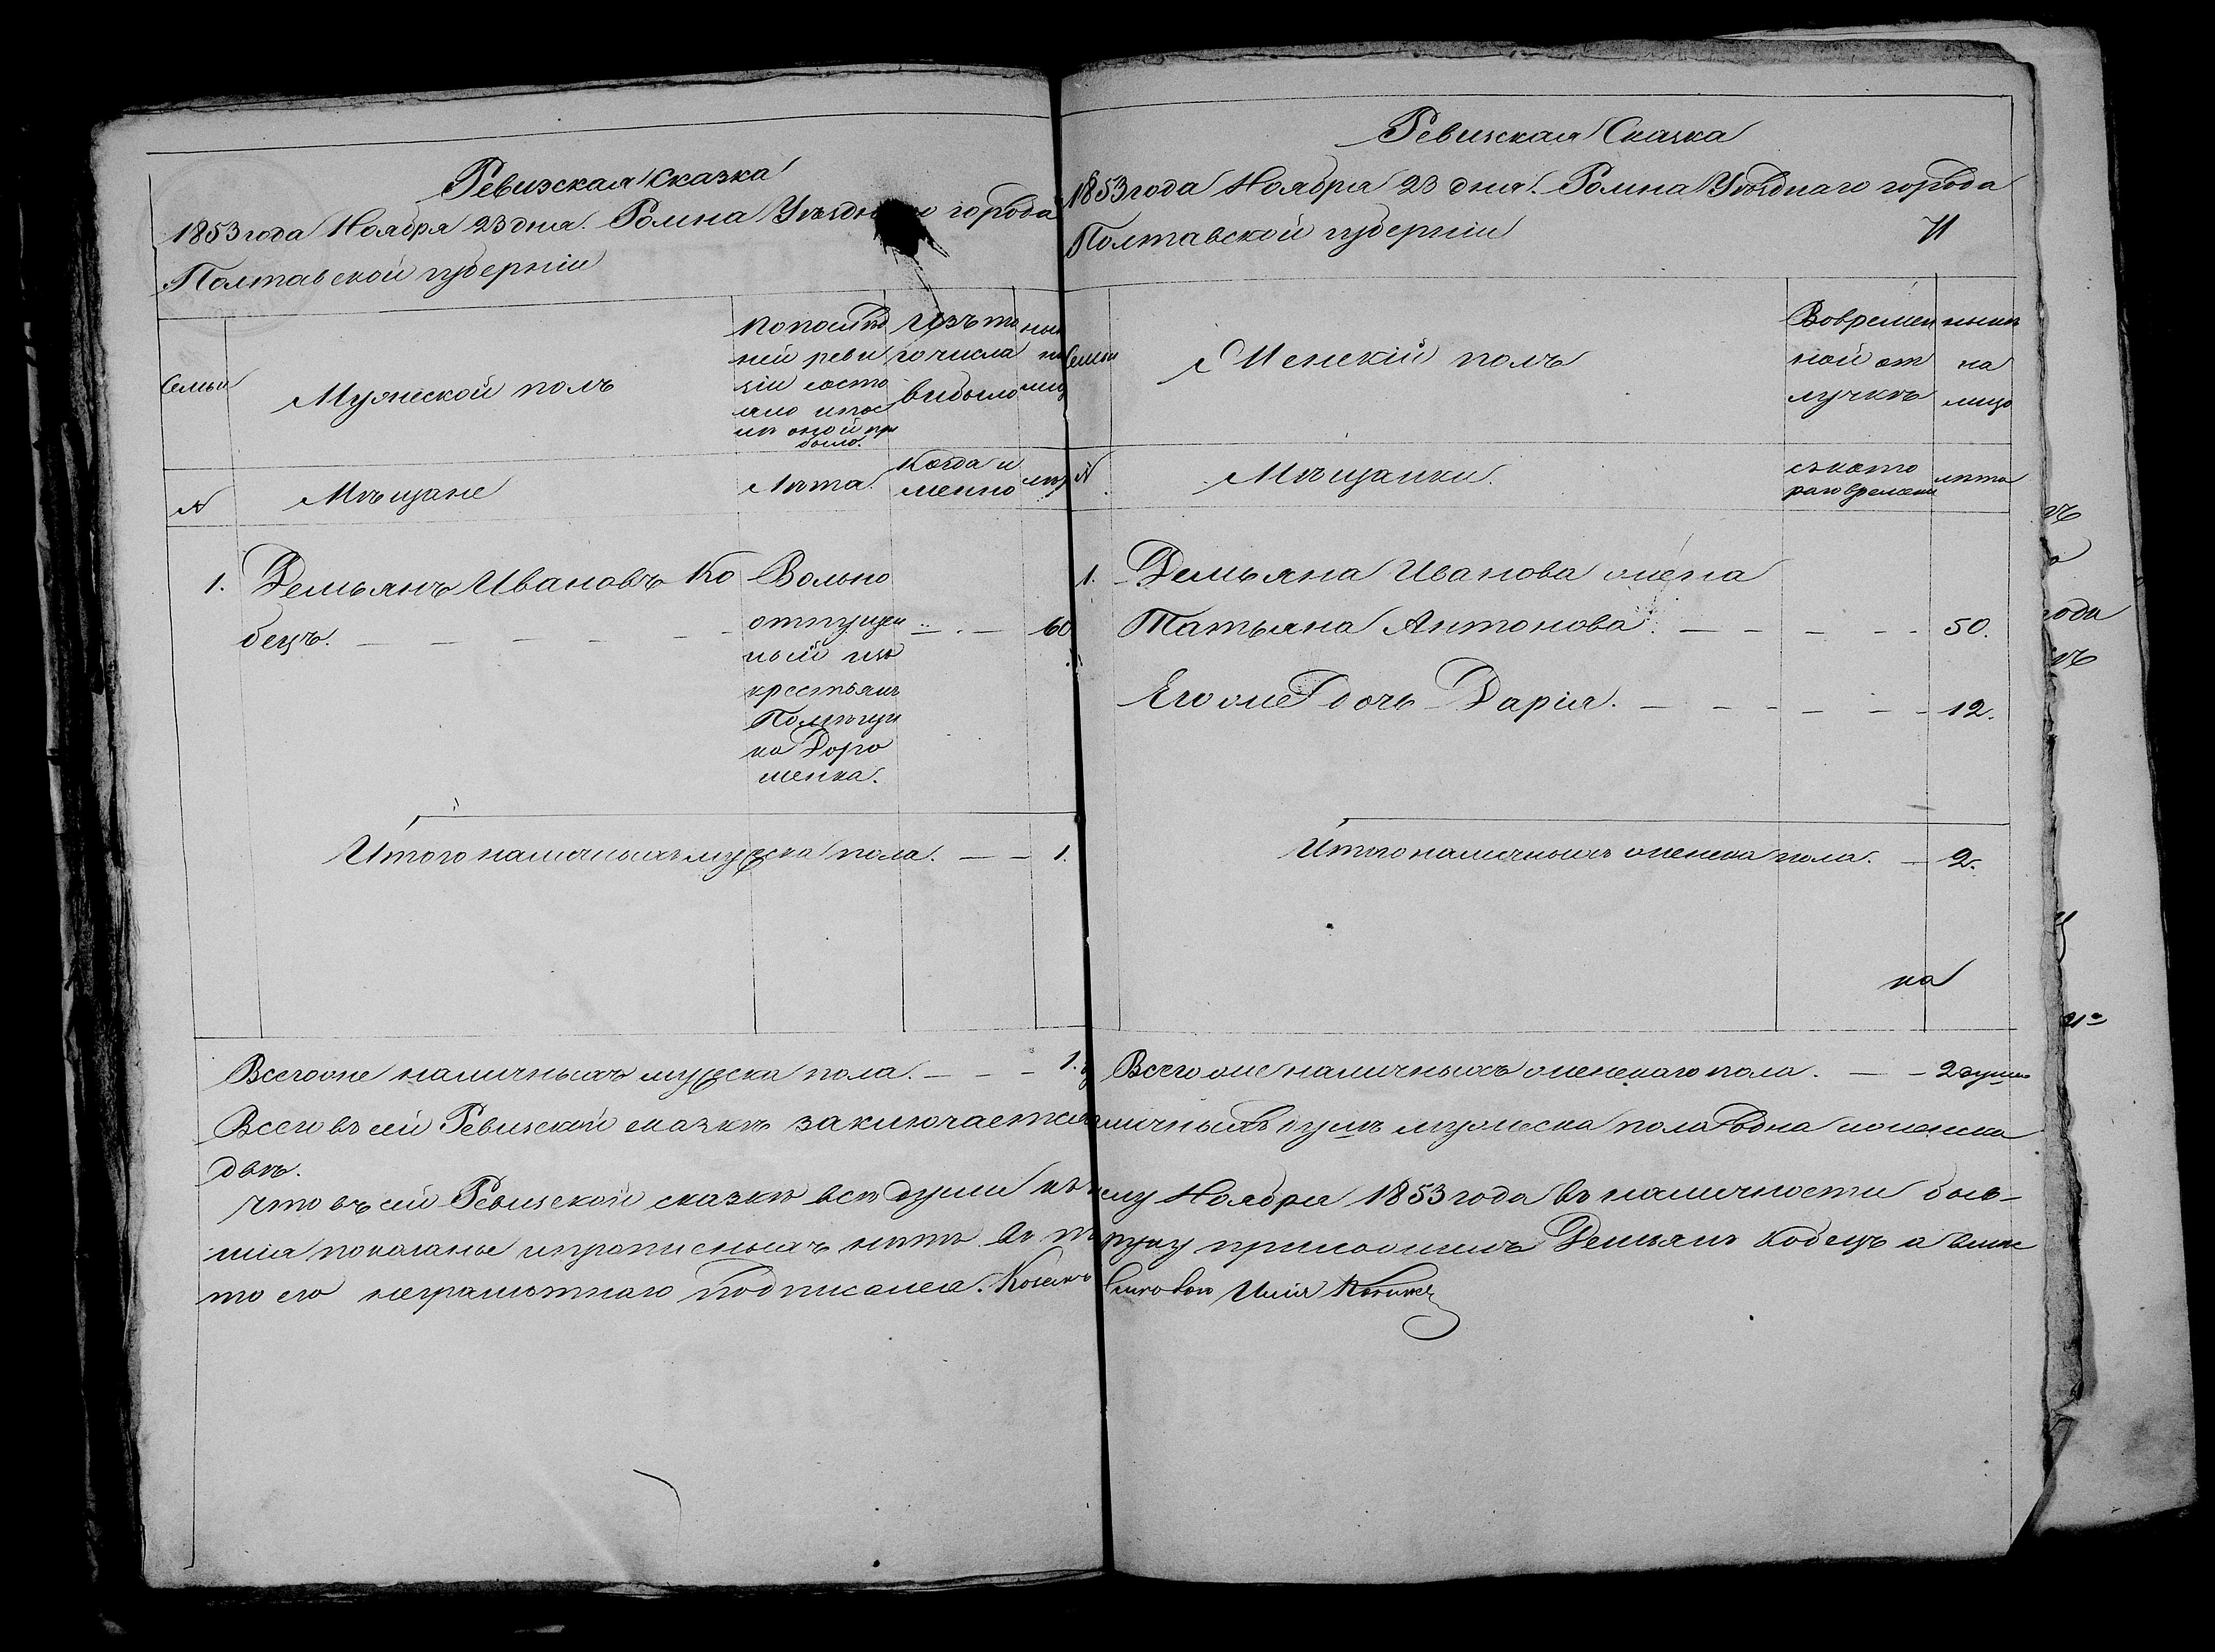 Ревизская Сказка
1853 года Ноября 23 дня. Ромна Уѣзднаго города
Полтавской губерніи
Семьи
Мужеской полъ
По послѣд
ней реви
зіи состо
яло и пос
лѣ оной при
было.
Изъ то
го числа
выбыло
ны
на
лиц
№
Мѣщане
Лѣта.
Когда и
менно
лѣт
1. Демьянъ Ивановъ Ко
бецъ. — — — — — — — — 60
Вольно
отпущен
ный изъ
крестьянъ
Помѣщи
ка Доро
шенка.
Итого наличныхъ мужеска пола. — — 1.
Всего же наличныхъ мужеска пола. — — — 1.
Ревизская Сказка
1853 года Ноября 23 дня. Ромна Уѣзднаго города
Полтавской губерніи
71
Семьи
Женскій полъ
Во времен
ной от
лучкѣ
нынѣ
на
лицо
№
Мѣщанки.
съ кото
раго времени
лѣта
1. Демьяна Иванова жена
Татьяна Антонова. — — — — — 50.
Его же дочь Дарія. — — — — — — 12.
Итого наличныхъ женска пола. — 2.
на
Всего же наличныхъ женскаго пола. — — 2 души
Всего въ сей Ревизской сказкѣ заключается наличныхъ душъ мужеска пола одна и женска
двѣ.
Что въ сей Ревизской сказкѣ всѣ души къ числу Ноября 1853 года въ наличности быв-
шія показаны и прописныхъ нѣтъ въ том руку приложилъ Демьянъ Кобецъ а вмѣс
то его неграмотнаго подписался. Козакъ Илія